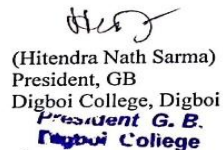 (Hitendra Nath Sarma)
President, GB
Digboi College, Digboi
President G. B.
Digboi College